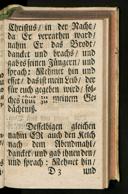 Christus / in der Nacht /
da Er verrathen ward /
nahm Er das Brodt /
dancket und brachs / und
gabs seinen Jüngern / und
sprach: Nehmet hin und
esset / das ist mein Leib / der
für euch gegeben wird / sol-
ches thut zu meinem Ge-
dächtniß.
Desselbigen gleichen
nahm Er auch den Kelch
nach dem Abendmahl /
dancket / und gab ihnen den /
und sprach: Nehmet hin /
D 3 und